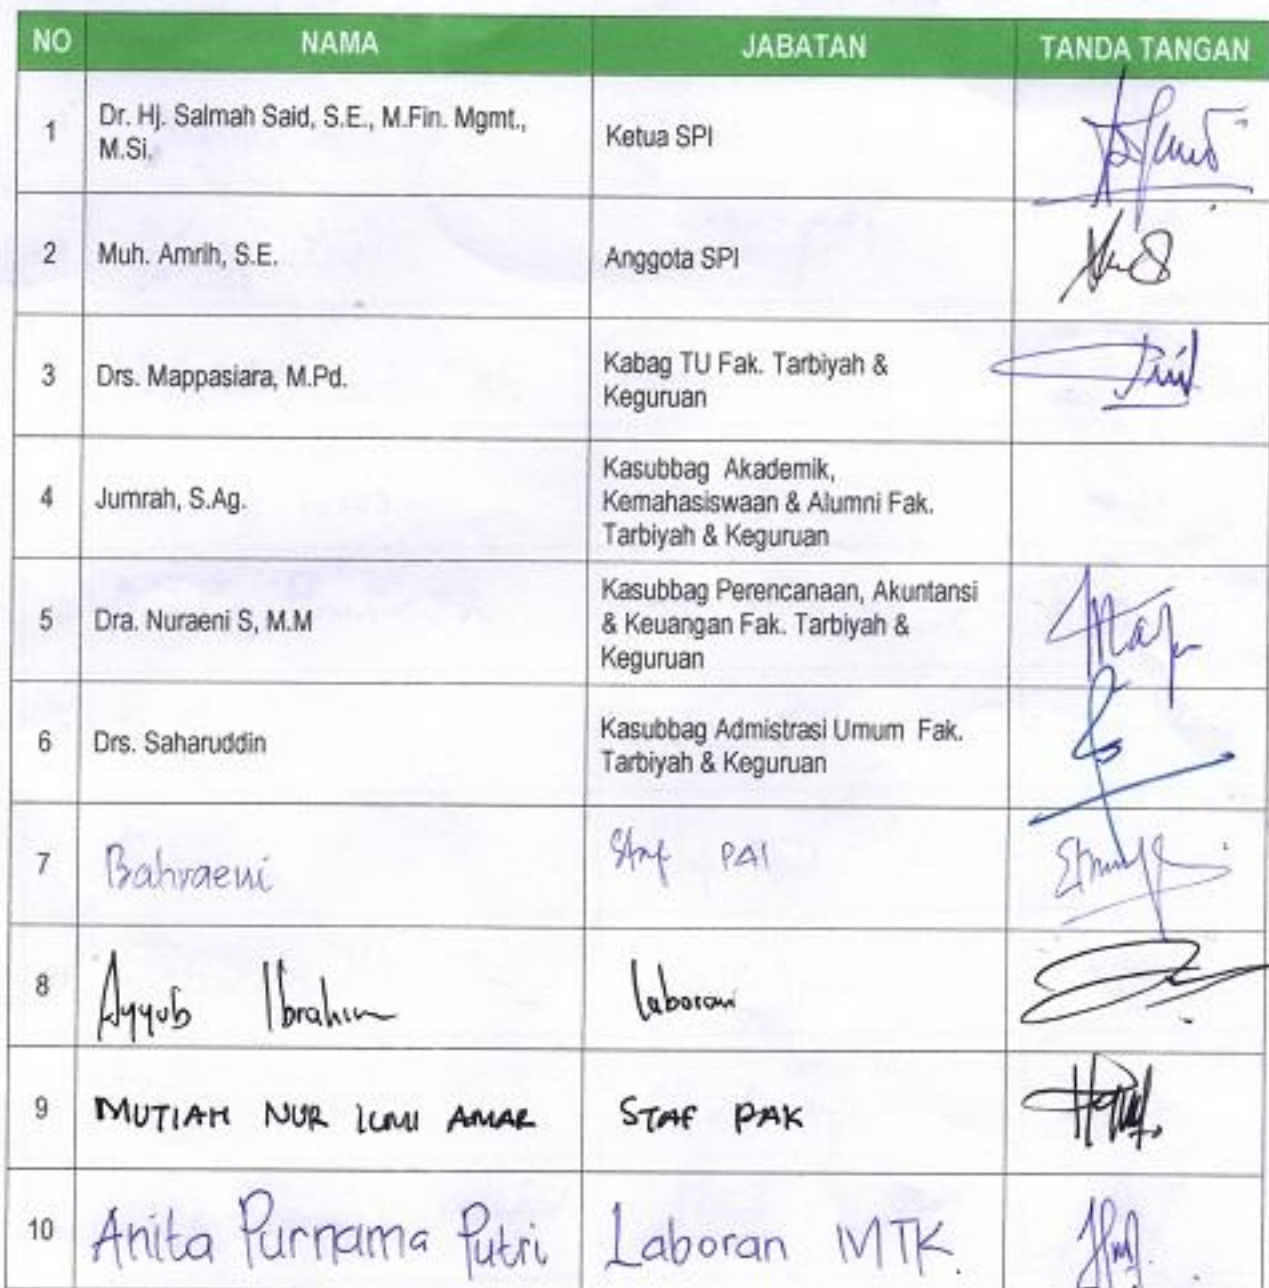 NO NAMA JABATAN TANDA TANGAN
1 Dr. Hj. Salmah Said, S.E., M.Fin. Mgmt., M.Si, Ketua SPI
2 Muh. Amrih, S.E. Anggota SPI
3 Drs. Mappasiara, M.Pd. Kabag TU Fak. Tarbiyah & Keguruan
4 Jumrah, S.Ag. Kasubbag Akademik, Kemahasiswaan & Alumni Fak. Tarbiyah & Keguruan
5 Dra. Nuraeni S, M.M Kasubbag Perencanaan, Akuntansi & Keuangan Fak. Tarbiyah & Keguruan
6 Drs. Saharuddin Kasubbag Admistrasi Umum Fak. Tarbiyah & Keguruan
7 Bahraeni Staf PAI
8 Ayyub Ibrahim Laboran
9 MUTIAH NUR ILMI AMAR STAF PAK
10 Anita Purnama Putri Laboran MTK.